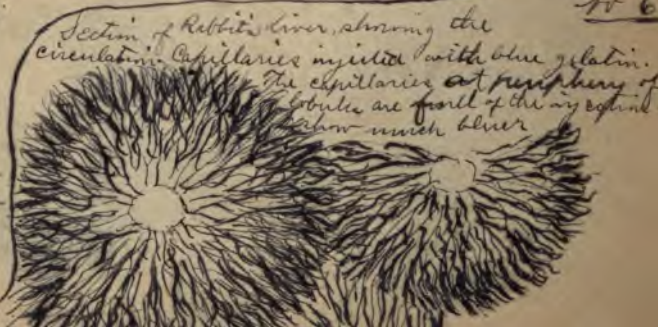 No 6
Section of Rabbit's Liver, showing the
circulation. Capillaries injected with blue gelatin.
The capillaries at periphery of
lobules are full of the injection
show much bluer